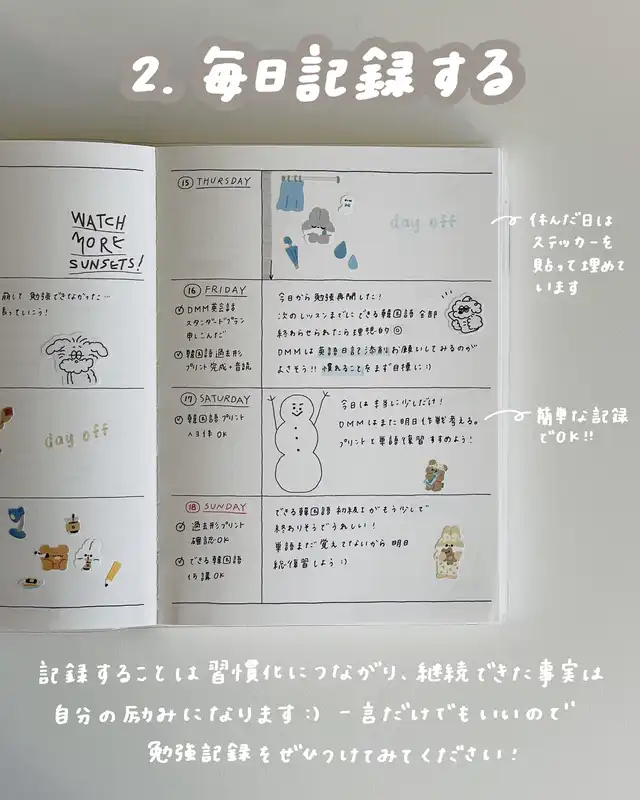 2. 毎日記録する
WATCH
MORE
SUNSETS!
勉強できなかった…
day off
15 THURSDAY
day off
休んだ日は
ステッカーを
貼って埋めて
います
16 FRIDAY
DMM英会話
スタンダードプラン
申しこんだ
韓国語 過去形
プリント完成+音読
今日から勉強再開した!
次のレッスンまでにできる韓国語 全部
終わらせられたら理想的◎
DMMは英語日記で添削お願いしてみるのが
よさそう!! 慣れることをまず目標に:)
17 SATURDAY
韓国語プリント
ヘヨ体 OK
今日は本当に少しだけ!
DMMはまた明日作戦考える。
プリントと単語で復習すすめよう!
簡単な記録
でOK!!
18 SUNDAY
過去形プリント
確認OK
できる韓国語
OK
できる韓国語 初級Iがもう少しで
終わりそうでうれしい!
単語まだ覚えてないから明日
総復習しよう:)
記録することは習慣化につながり、継続できた事実は
自分の励みになります:) 一言だけでもいいので
勉強記録をぜひつけてみてください!